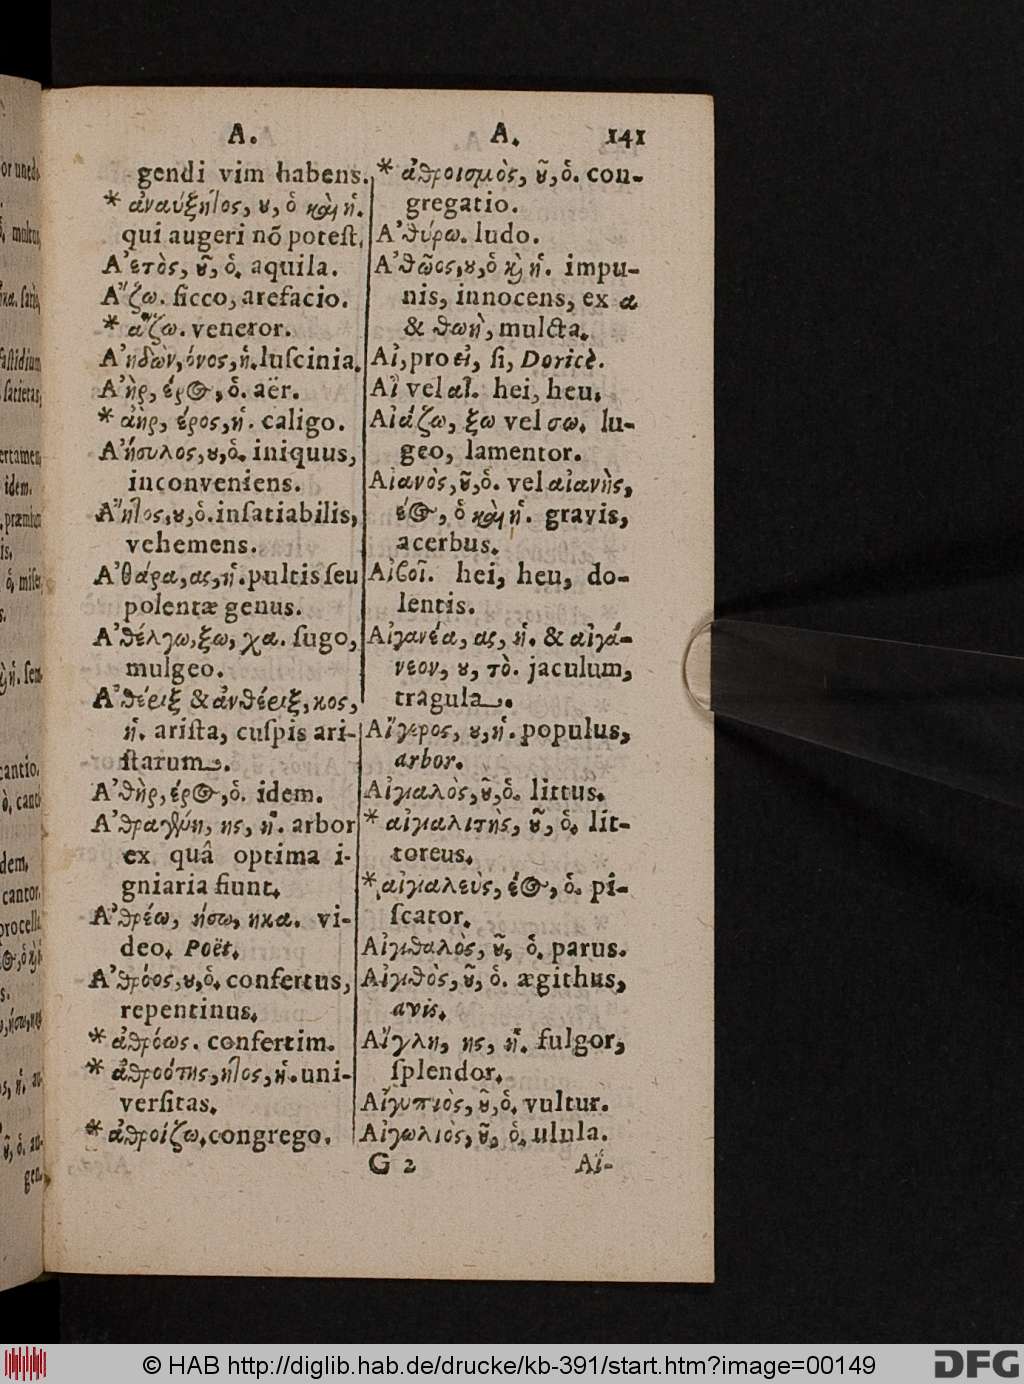 A. A. 141
gendi vim habens.
* ἀναύξητος, ȣ, ὁ καὶ ἡ.
qui augeri nõ poteſt.
Α᾽ετὸς, ȣ͂, ὁ. aquila.
Α῎ζω. ſicco, arefacio.
* ἅζω. veneror.
Α᾽ηδὼν, όνος, ἡ. luſcinia.
Α᾽ὴρ, έρος, ὁ. aër.
* ἀὴρ, έρος, ἡ. caligo.
Α᾽ήσυλος, ȣ, ὁ. iniquus,
inconveniens.
Α῎ητος, ȣ, ὁ. inſatiabilis,
vehemens.
Α᾽θάρα, ας, ἡ. pultis ſeu
polentæ genus.
Α᾽θέλγω, ξω, χα. ſugo,
mulgeo.
Α᾽θέριξ & ἀνθέριξ, κος,
ἡ. ariſta, cuſpis ari-
ſtarum.
Α᾽θὴρ, έρος, ὁ. idem.
Α᾽θραγένη, ης, ἡ. arbor
ex quâ optima i-
gniaria fiunt.
Α᾽θρέω, ήσω, ηκα. vi-
deo. Poët.
Α᾽θρόος, ȣ, ὁ. confertus,
repentinus.
* ἀθρόως. confertim.
* ἀθροότης, ητος, ἡ. uni-
verſitas.
* ἀθροίζω. congrego.
* ἀθροισμὸς, ȣ͂, ὁ. con-
gregatio.
Α᾽θύρω. ludo.
Α᾽θῶος, ȣ, ὁ κỳ ἡ. impu-
nis, innocens, ex α
& θωὴ, mulcta.
Αἰ, pro εἰ, ſi, Doricè.
Αἲ vel αἴ. hei, heu.
Αἰάζω, ξω vel σω. lu-
geo, lamentor.
Αἰανὸς, ȣ͂, ὁ. vel αἰανὴς,
έος, ὁ καὶ ἡ. gravis,
acerbus.
Αἰβοῖ. hei, heu, do-
lentis.
Αἰγανέα, ας, ἡ. & αἰγά-
νεον, ȣ, τὸ. jaculum,
tragula.
Αἴγειρος, ȣ, ἡ. populus,
arbor.
Αἰγιαλὸς, ȣ͂, ὁ. littus.
* αἰγιαλιτὴς, ȣ͂, ὁ. lit-
toreus.
* αἰγιαλεὺς, έος, ὁ. pi-
ſcator.
Αἰγιθαλὸς, ȣ͂, ὁ. parus.
Αἰγιθὸς, ȣ͂, ὁ. ægithus,
avis.
Αἴγλη, ης, ἡ. fulgor,
ſplendor.
Αἰγυπιὸς, ȣ͂, ὁ. vultur.
Αἰγωλιὸς, ȣ͂, ὁ. ulula.
G 2 Αἴ-
© HAB http://diglib.hab.de/drucke/kb-391/start.htm?image=00149
DFG